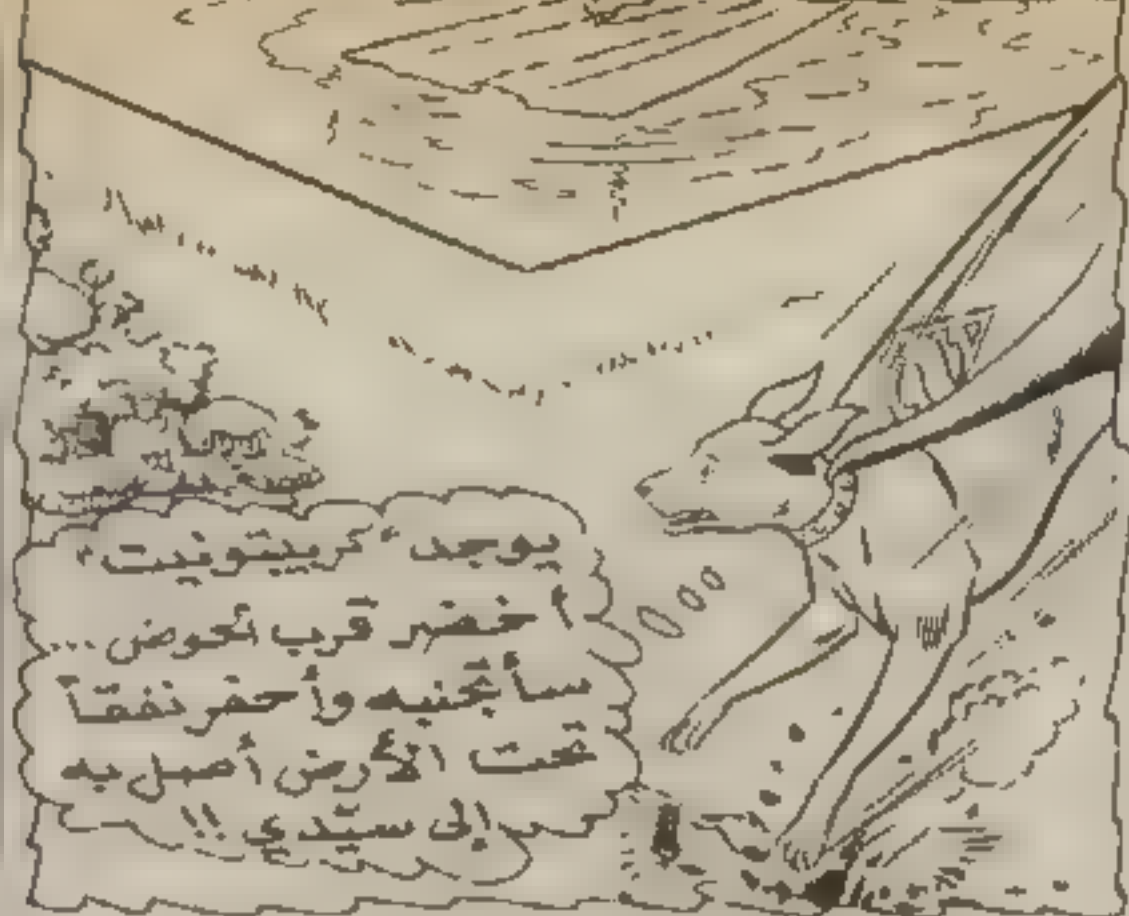 يوجد "كريبتونيت"
أخضر قرب الحوض...
سأتجنبه وأحفر نفقاً
تحت الأرض أصل به
إلى سيّدي !!